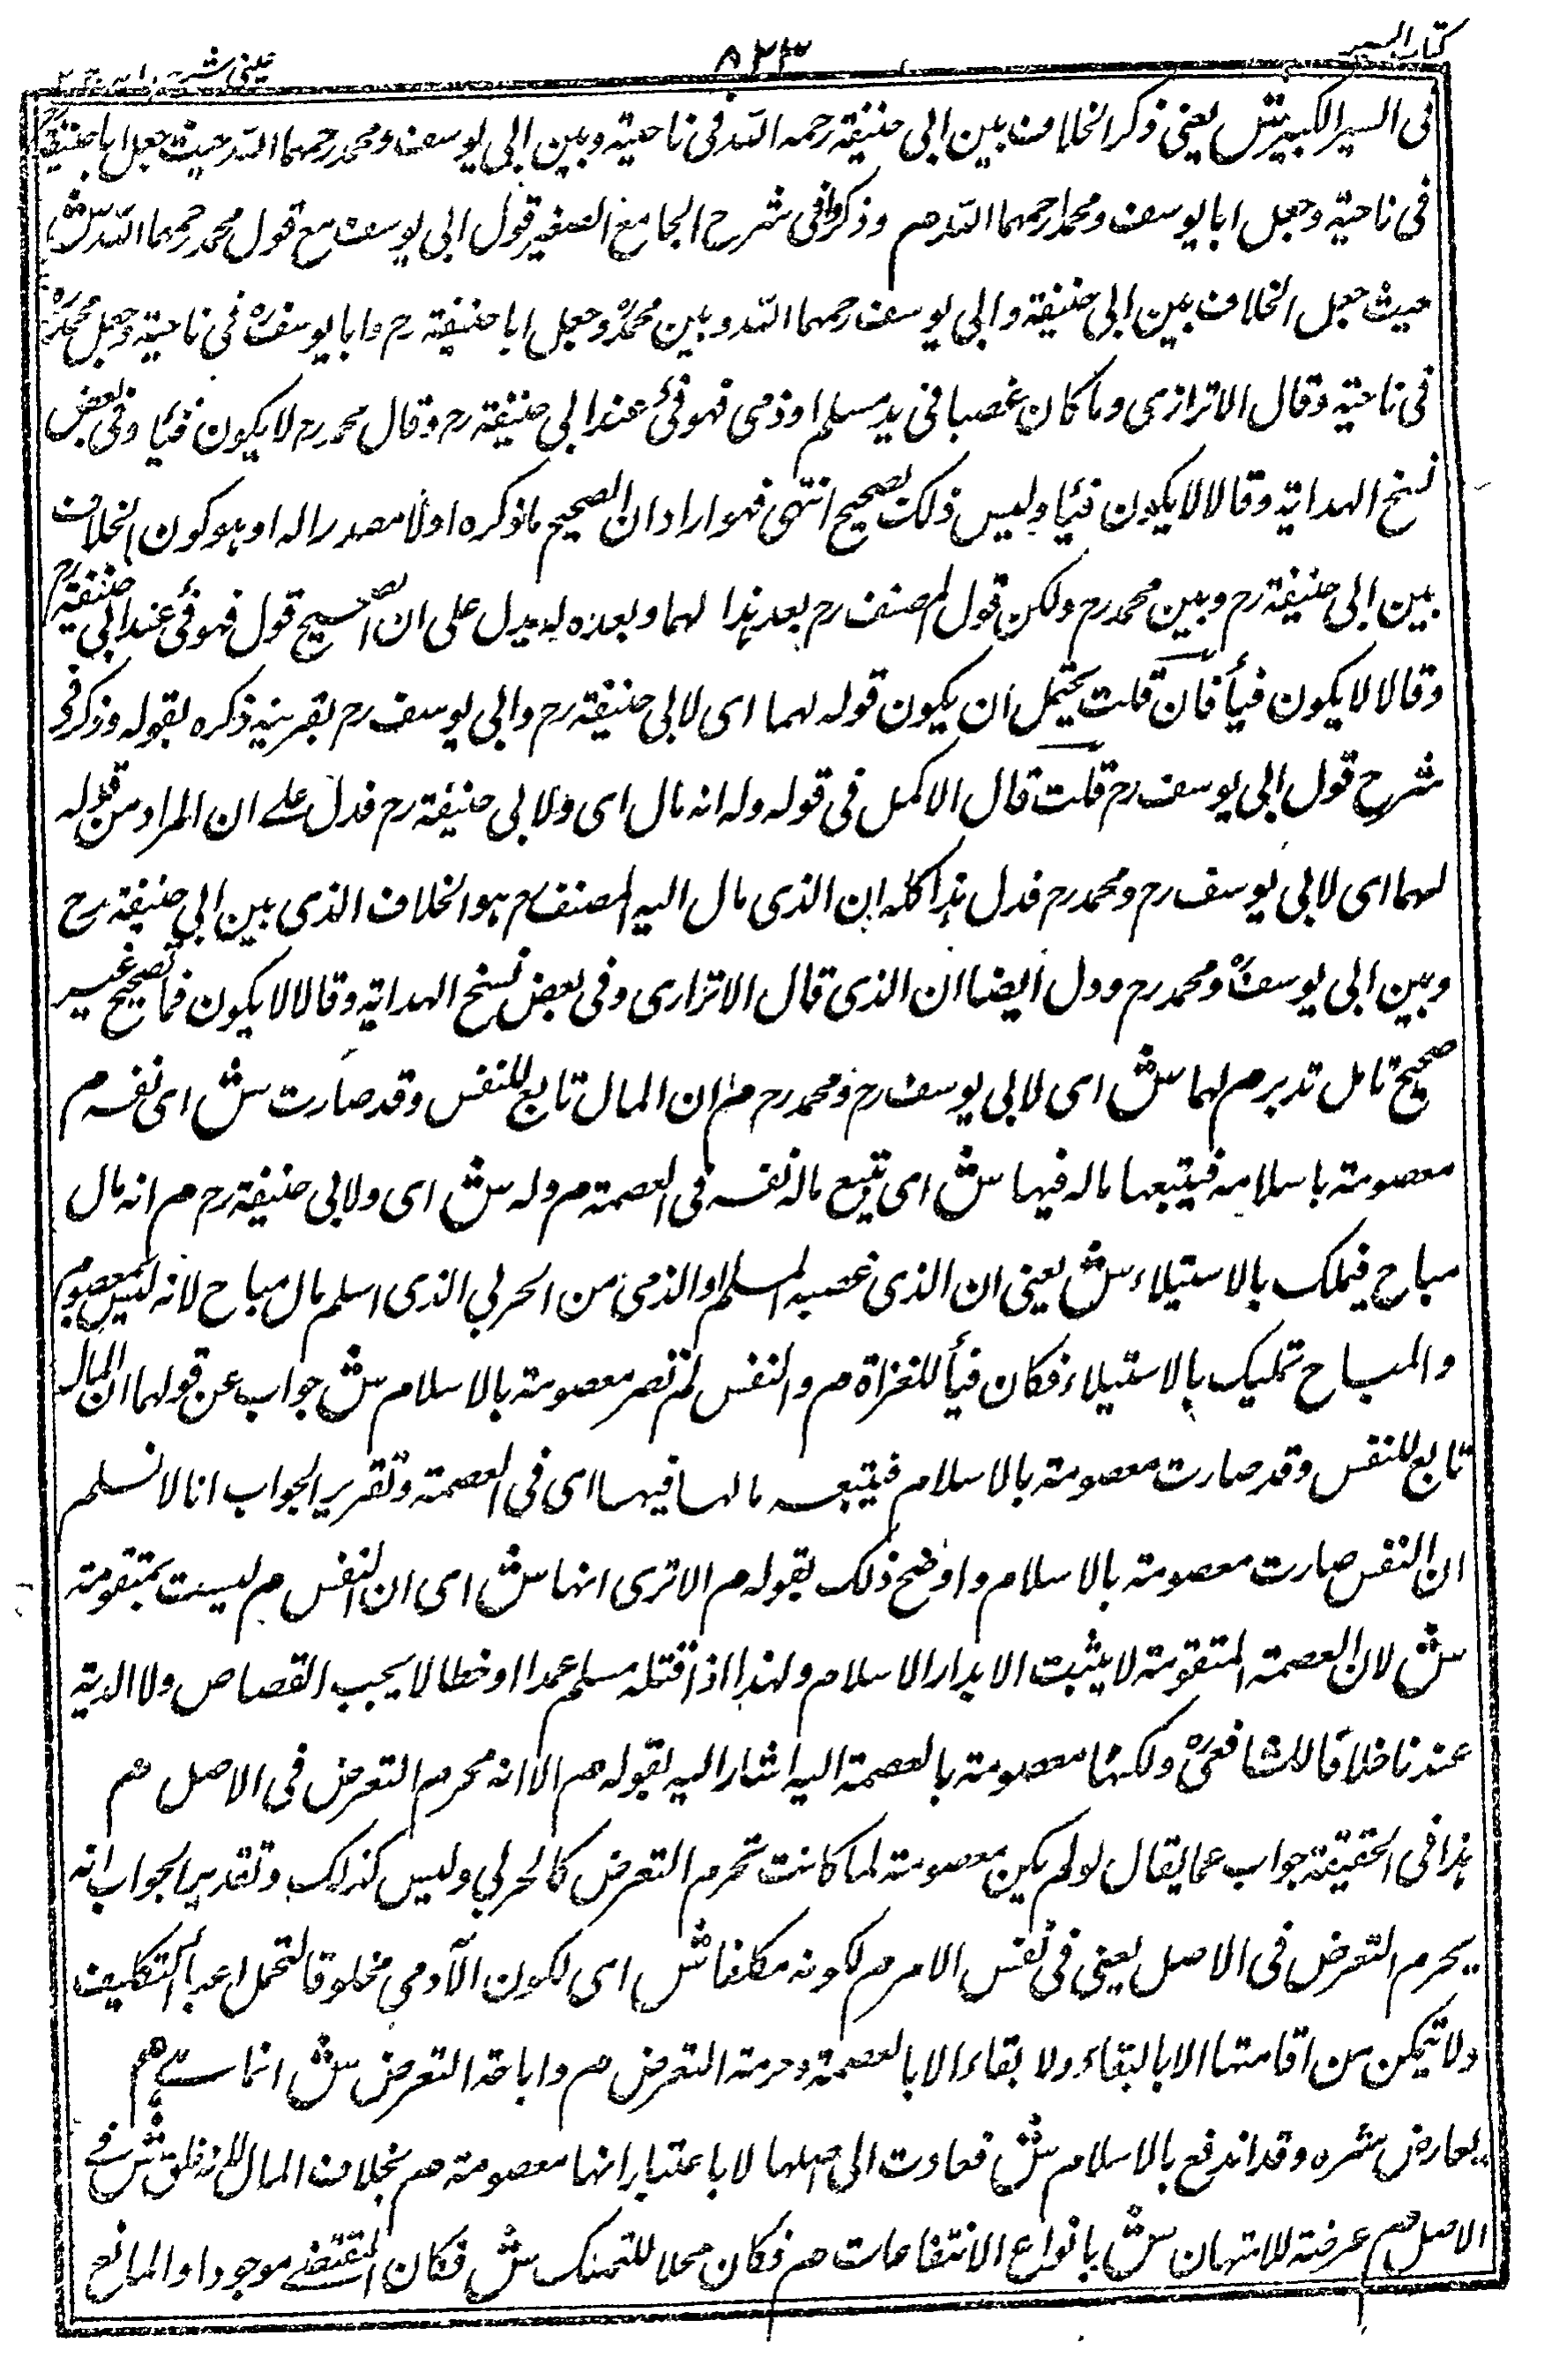 كتاب السير
٨٢٣
عينى شرح هدايه ج ٢
فى السير الكبير ش يعنى ذكر الخلاف بين ابى حنيفة رحمه الله فى ناحية وبين ابى يوسف ومحمد رحمهما الله حيث جعل ابا حنيفة رح
فى ناحية وجعل ابا يوسف ومحمدا رحمهما الله م وذكروا فى شرح الجامع الصغير قول ابى يوسف مع قول محمد رحمهما الله ش
حيث جعل الخلاف بين ابى حنيفة وابى يوسف رحمهما الله وبين محمد رح وجعل ابا حنيفة رح وابا يوسف رح فى ناحية وجعل محمد رح
فى ناحية وقال الاترازى وما كان غصبا فى يد مسلم او ذمى فهو فئ عند ابى حنيفة رح وقال محمد رح لا يكون فيئا وفى بعض
نسخ الهداية وقالا لا يكون فيئا وليس ذلك بصحيح انتهى فهو اراد ان الصحيح ما ذكره اولا مصدرا له او هو كون الخلاف
بين ابى حنيفة رح وبين محمد رح ولكن قول المصنف رح بعد هذا لهما وبعده له يدل على ان الصحيح قول فهو فئ عند ابى حنيفة رح
وقالا لا يكون فيأ فان قلت يحتمل ان يكون قوله لهما اى لابى حنيفة رح وابى يوسف رح بقرينة ذكره بقوله وذكر فى
شرح قول ابى يوسف رح قلت قال الاكمل فى قوله وله انه مال اى ولابى حنيفة رح فدل على ان المراد من قوله
لهما اى لابى يوسف رح ومحمد رح فدل هذا كله ان الذى مال اليه المصنف رح هو الخلاف الذى بين ابى حنيفة رح
وبين ابى يوسف رح ومحمد رح ودل ايضا ان الذى قال الاترازى وفى بعض نسخ الهداية وقالا لا يكون فما تصحيح غير
صحيح تامل تدبر م لهما ش اى لابى يوسف رح ومحمد رح م ان المال تابع للنفس وقد صارت ش اى نفسه م
معصومة باسلامه فيتبعها ماله فيها ش اى تتبع ماله نفسه فى العصمة م وله ش اى ولابى حنيفة رح م انه مال
مباح فيملك بالاستيلاء ش يعنى ان الذى غصبه المسلم او الذمى من الحربى الذى اسلم مال مباح لانه ليس بمعصوم
والمباح تمليك بالاستيلاء فكان فيأ للغزاة م والنفس لم تصر معصومة بالاسلام ش جواب عن قولهما ان المال
تابع للنفس وقد صارت معصومة بالاسلام فيتبعه مالها فيها اى فى العصمة وتقرير الجواب انا لا نسلم
ان النفس صارت معصومة بالاسلام واوضح ذلك بقوله م الا ترى انها ش اى ان النفس م ليست بمتقومة
ش لان العصمة المتقومة لا يثبت الا بدار الاسلام ولهذا اذا قتله مسلم عمدا او خطا لا يجب القصاص ولا الدية
عندنا خلافا للشافعى رح ولكنها معصومة بالعصمة اليه اشار اليه بقوله م الا انه محرم التعرض فى الاصل م
هذا فى الحقيقة جواب عما يقال لو لم يكن معصومة لما كانت تحرم التعرض كالحربى وليس كذلك وتقدير الجواب انه
يحرم التعرض فى الاصل يعنى فى نفس الامر م لكونه مكلفا ش اى لكون الآدمي مخلوقا لتحمل اعباء التكليف
ولا تيمكن من اقامتها الا بالبقاء ولا بقاء الا بالعصمة وحرمة التعرض م واباحة التعرض ش انما هى م
بعارض شره وقد اندفع بالاسلام ش فعادت الى اصلها لا باعتبار انها معصومة م بخلاف المال لانه خلق ش فى
الاصل م عرضة للامتهان ش بانواع الانتفاعات م فكان محلا للتملك ش فكان المقتضى موجودا والمانع